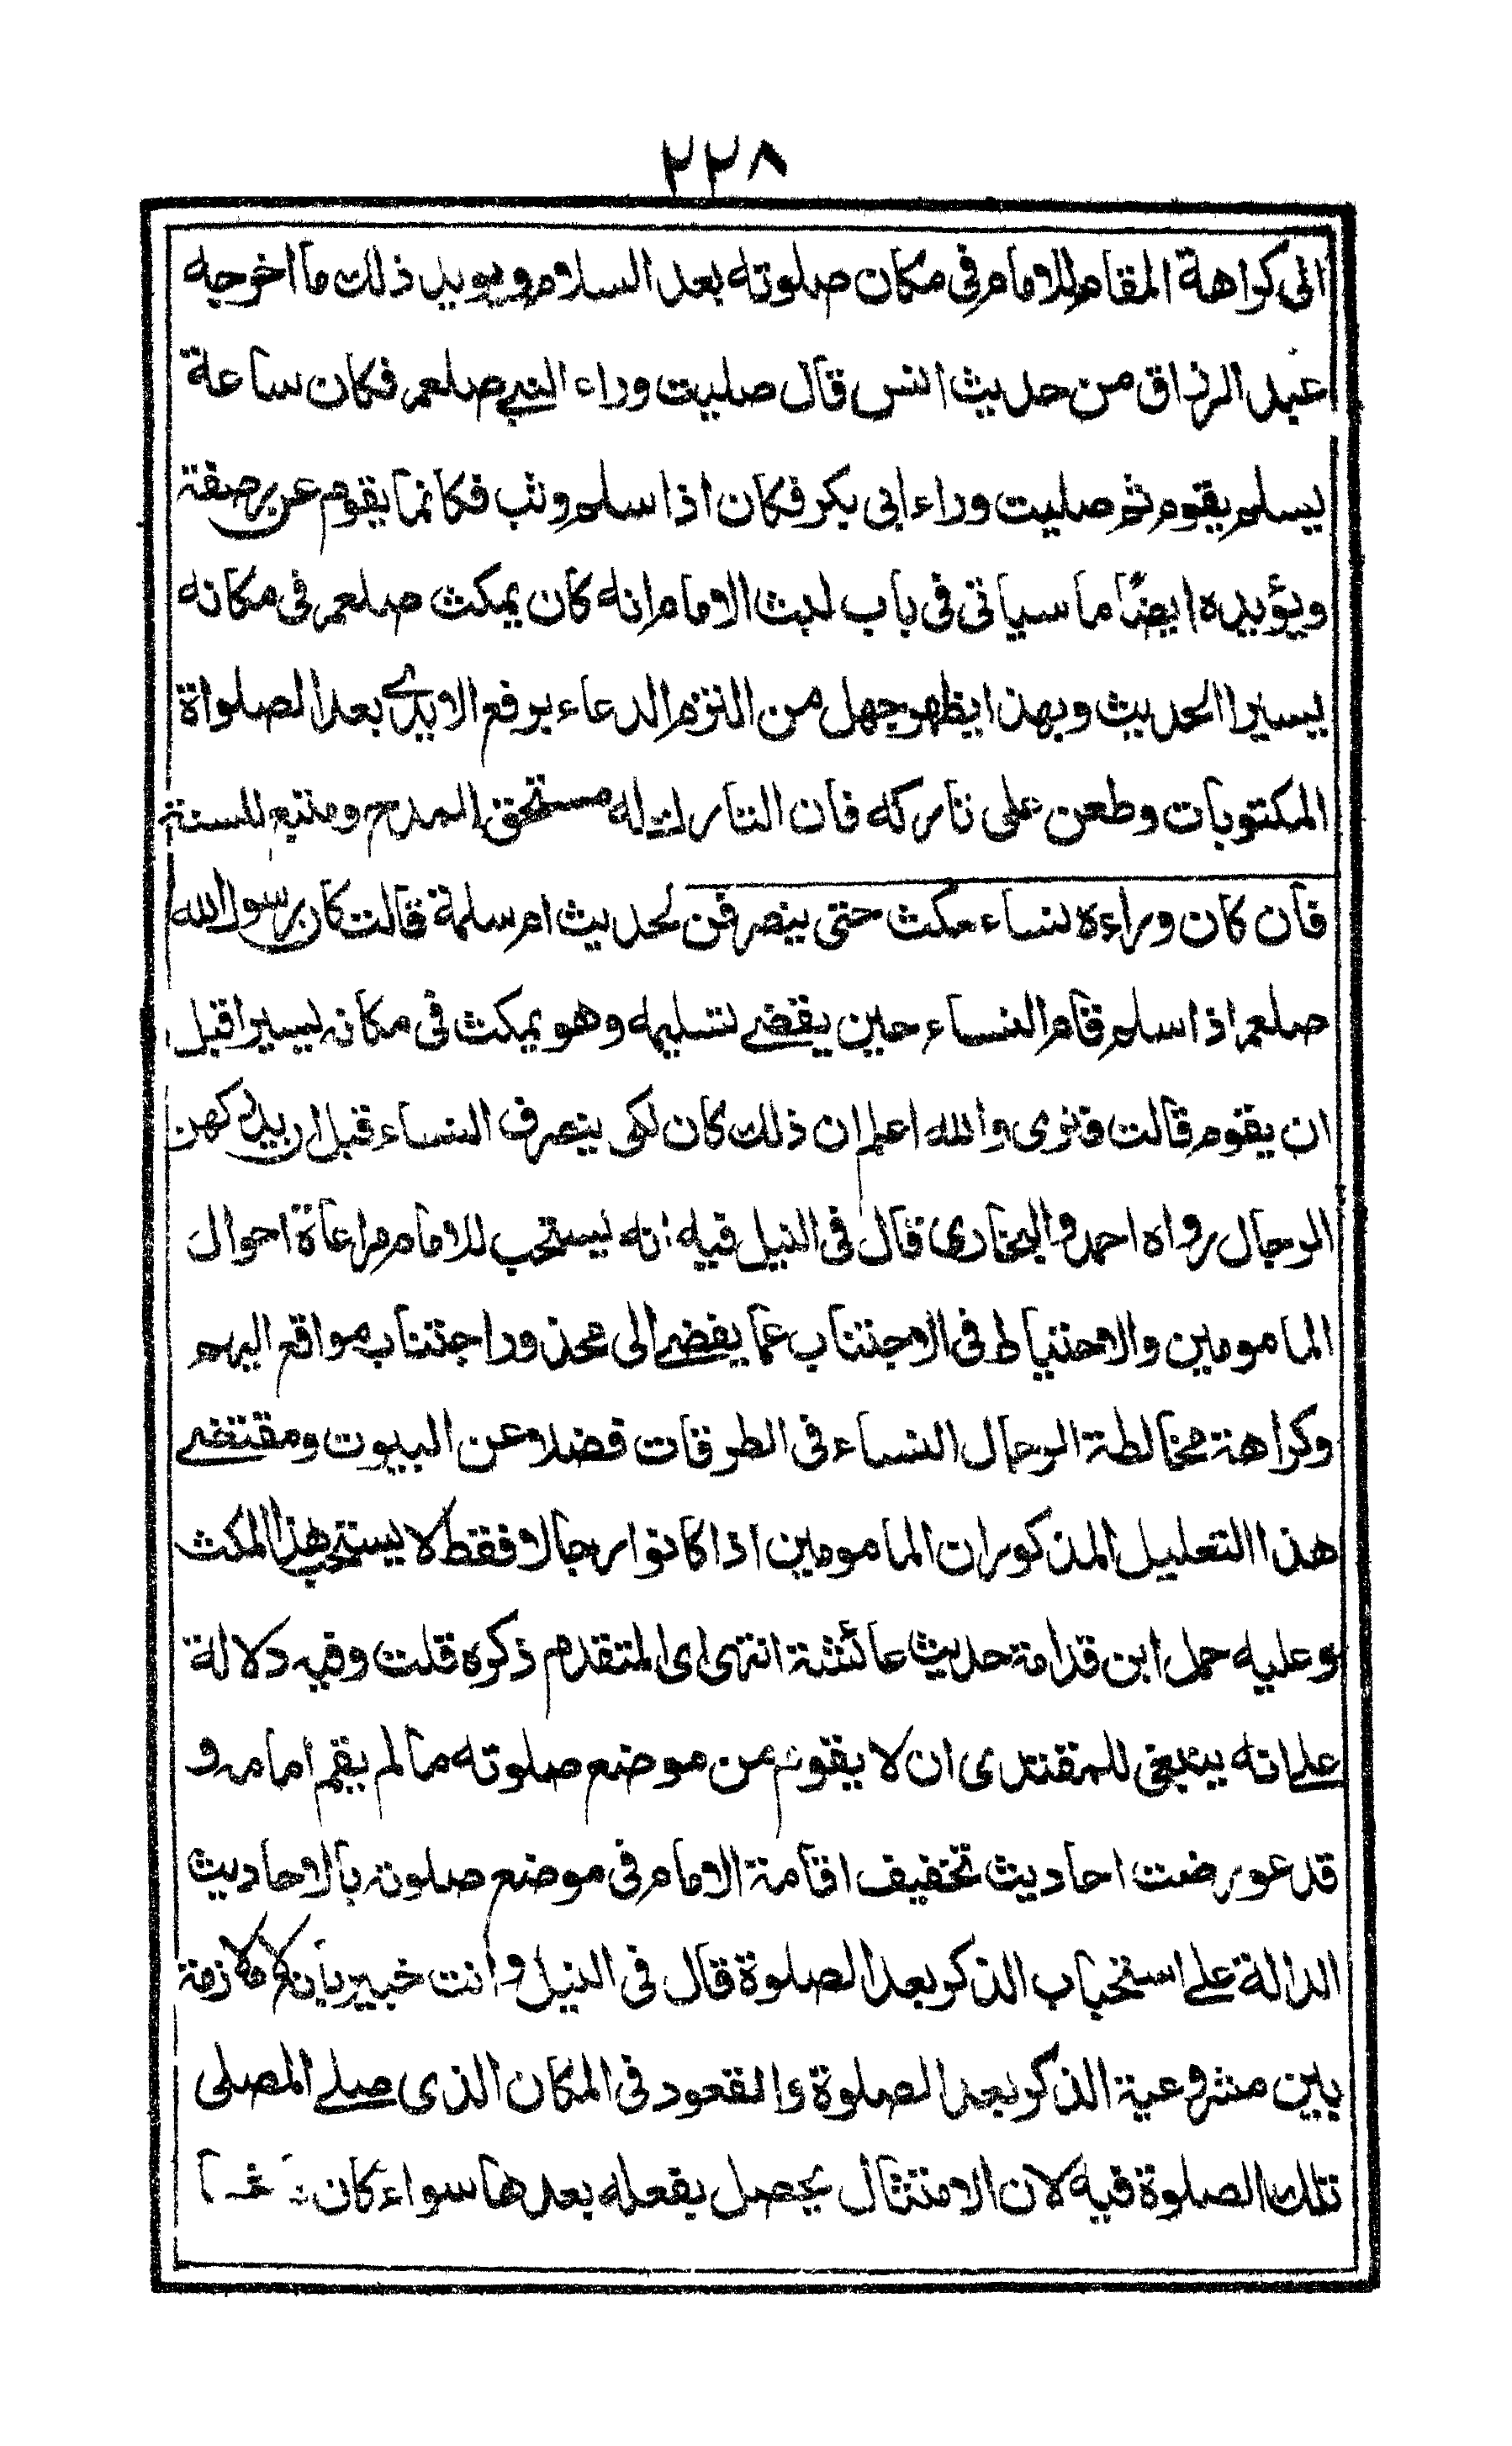 ٢٢٨
الى كراهة المقام للامام فى مكان صلوته بعد السلام ويويد ذلك ما اخرجه
عبد الرزاق من حديث انس قال صليت وراء النبي صلعم فكان ساعة
يسلم يقوم ثم صليت وراء ابى بكر فكان اذا سلم وثب فكانما يقوم عن رضفة
ويؤيده ايضًا ما سياتى فى باب لبث الامام انه كان يمكث صلعم فى مكانه
يسيرا الحديث وبهذا يظهر جهل من التزم الدعاء برفع الايدي بعد الصلواة
المكتوبات وطعن على تاركه فان التارك له مستحق المدح ومتبع للسنة
فان كان وراءه نساء مكث حتى ينصرفن لحديث ام سلمة قالت كان رسول الله
صلعم اذا سلم قام النساء حين يقضي تسليمه وهو يمكث فى مكانه يسيرا قبل
ان يقوم قالت فنرى والله اعلم ان ذلك كان لكى ينصرف النساء قبل ان يدركهن
الرجال رواه احمد والبخارى قال فى النيل فيه انه يستحب للامام مراعاة احوال
المامومين والاحتياط فى الاجتناب عما يفضي الى محذور اجتناب مواقع التهم
وكراهة مخالطة الرجال النساء فى الطرقات فضلا عن البيوت ومقتضي
هذا التعليل المذكور ان المامومين اذا كانوا رجالا فقط لا يستحب هذا المكث
وعليه حمل ابن قدامة حديث عائشة انتهى اى المتقدم ذكره قلت وفيه دلالة
على انه ينبغى للمقتدى ان لا يقوم من موضع صلوته ما لم يقم امامه و
قد عورضت احاديث تخفيف اقامة الامام فى موضع صلوته بالاحاديث
الدالة على استحباب الذكر بعد الصلوة قال فى النيل وانت خبير بانه لا ملازمة
بين مشروعية الذكر بعد الصلوة والقعود فى المكان الذى صلى المصلى
تلك الصلوة فيه لان الامتثال يحصل بفعله بعدها سواء كان